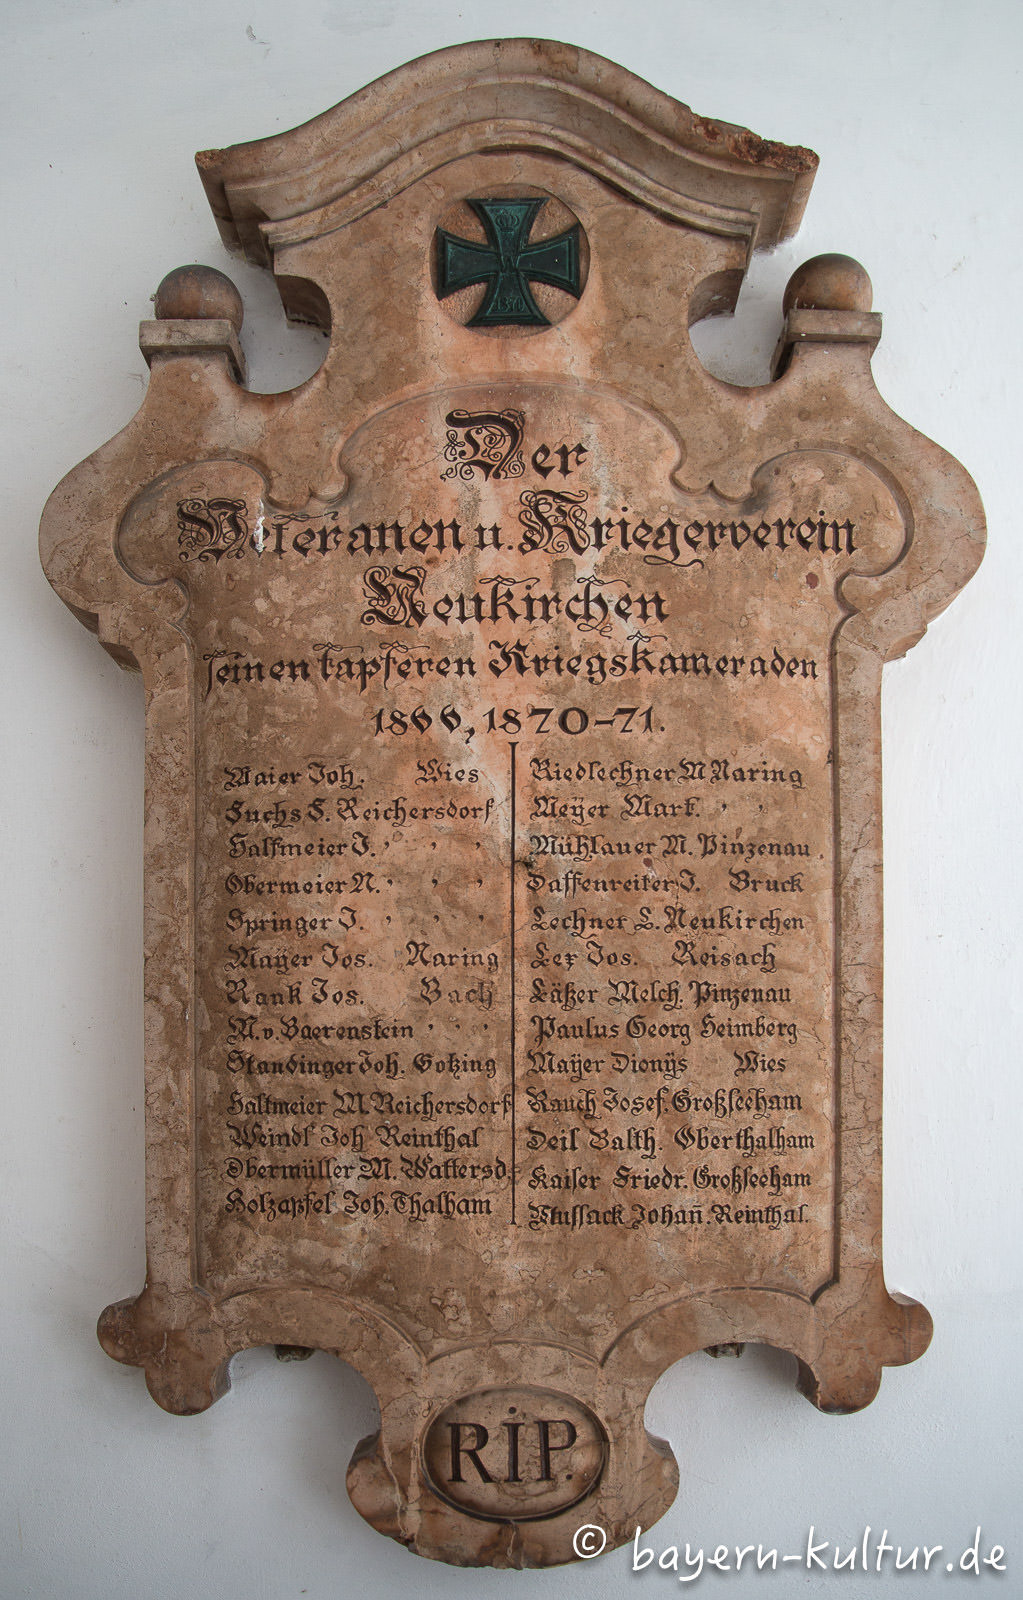 1870
Der
Veteranen u. Kriegerverein
Neukirchen
seinen tapferen Kriegskameraden
1866, 1870-71.
Maier Joh. Wies
Fuchs S. Reichersdorf
Halfmeier J. " " "
Obermeier N. " " "
Springer J. " " "
Mayer Jos. Naring
Rank Jos. Bach
M. v. Baerenstein " " "
Standinger Joh. Gotzing
Haltmeier M. Reichersdorf
Weindl Joh Reinthal
Obermüller M. Wattersd.
Holzapfel Joh. Thalham
Riedlechner M Naring
Meÿer Mart. " "
Mühlauer M. Pinzenau
Daffenreiter J. Bruck
Lechner L. Neukirchen
Lex Jos. Reisach
Läßer Melch. Pinzenau
Paulus Georg Heimberg
Maÿer Dionÿs Wies
Rauch Josef. Großseeham
Deil Balth. Oberthalham
Kaiser Friedr. Großseeham
Mussack Johan̄. Reinthal.
RIP.
© bayern-kultur.de